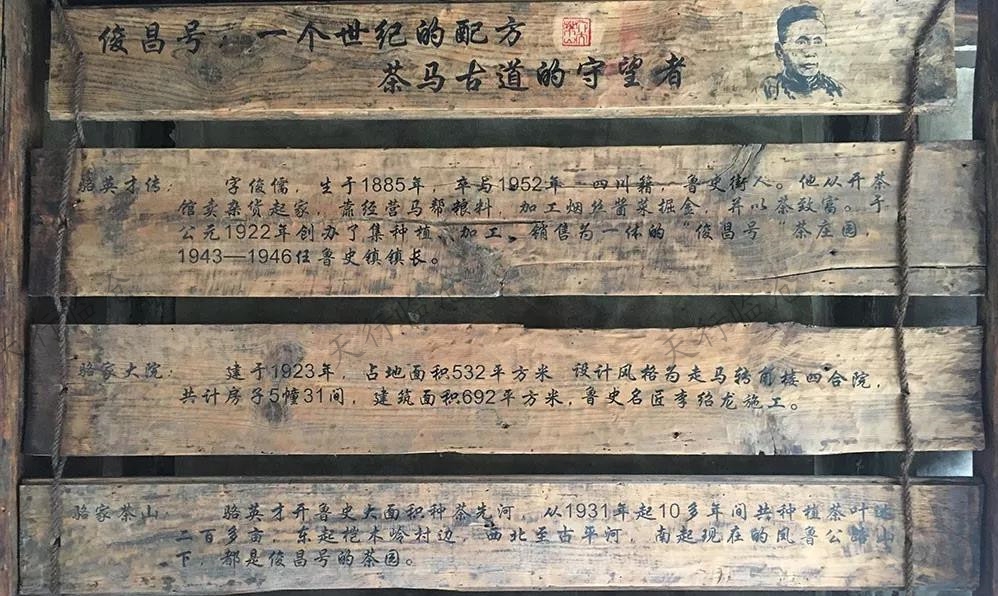 俊昌号：一个世纪的配方
茶马古道的守望者
骆英才传： 字俊儒，生于1885年，卒与1952年 四川籍，鲁史街人。他从开茶
馆卖杂货起家，靠经营马帮粮料，加工烟丝酱菜掘金，并以茶致富。于
公元1922年创办了集种植、加工、销售为一体的“俊昌号”茶庄园，
1943—1946任鲁史镇镇长。
骆家大院： 建于1923年，占地面积532平方米 设计风格为走马转角楼四合院，
共计房子5幢31间，建筑面积692平方米，鲁史名匠李绍龙施工。
骆家茶山： 骆英才开鲁史大面积种茶先河，从1931年起10多年间共种植茶叶达
二百多亩，东起桤木岭村边，西北至古平河，南起现在的凤鲁公路山
下，都是俊昌号的茶园。
天行临沧
天行临沧